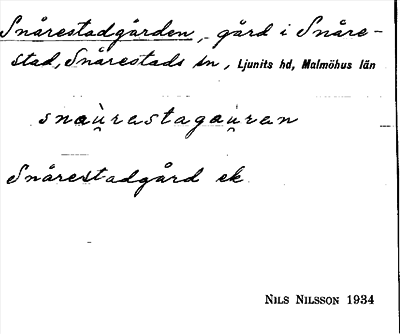 Snårestadgården, gård i Snåre-
stad, Snårestads sn, Ljunits hd, Malmöhus län
snau̯rastagau̯ran
Snårestadgård ek.
NILS NILSSON 1934